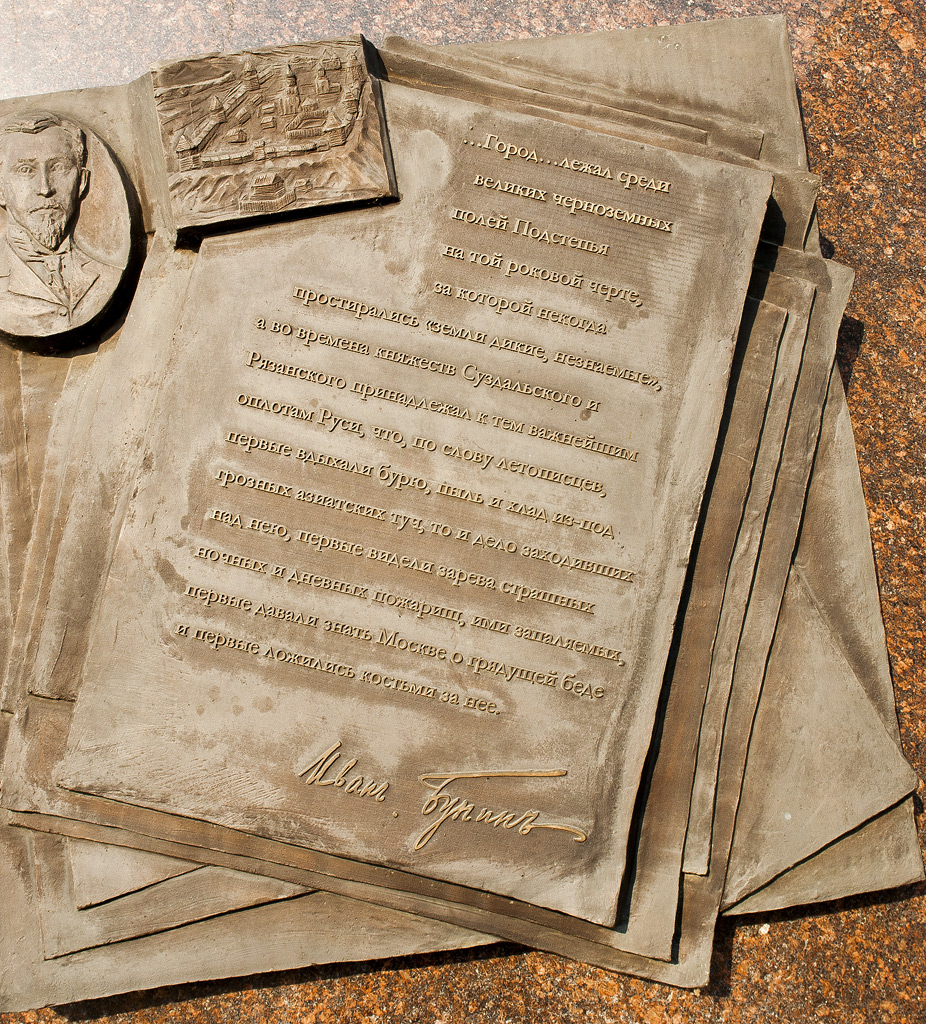 ...Город...лежал среди
великих черноземных
полей Подстепья
на той роковой черте,
за которой некогда
простирались «земли дикие, незнаемые»,
а во времена княжеств Суздальского и
Рязанского принадлежал к тем важнейшим
оплотам Руси, что, по слову летописцев,
первые вдыхали бурю, пыль и хлад из-под
грозных азиатских туч, то и дело заходивших
над нею, первые видели зарева страшных
ночных и дневных пожарищ, ими запаляемых,
первые давали знать Москве о грядущей беде
и первые ложились костьми за нее.
Иванъ Бунинъ